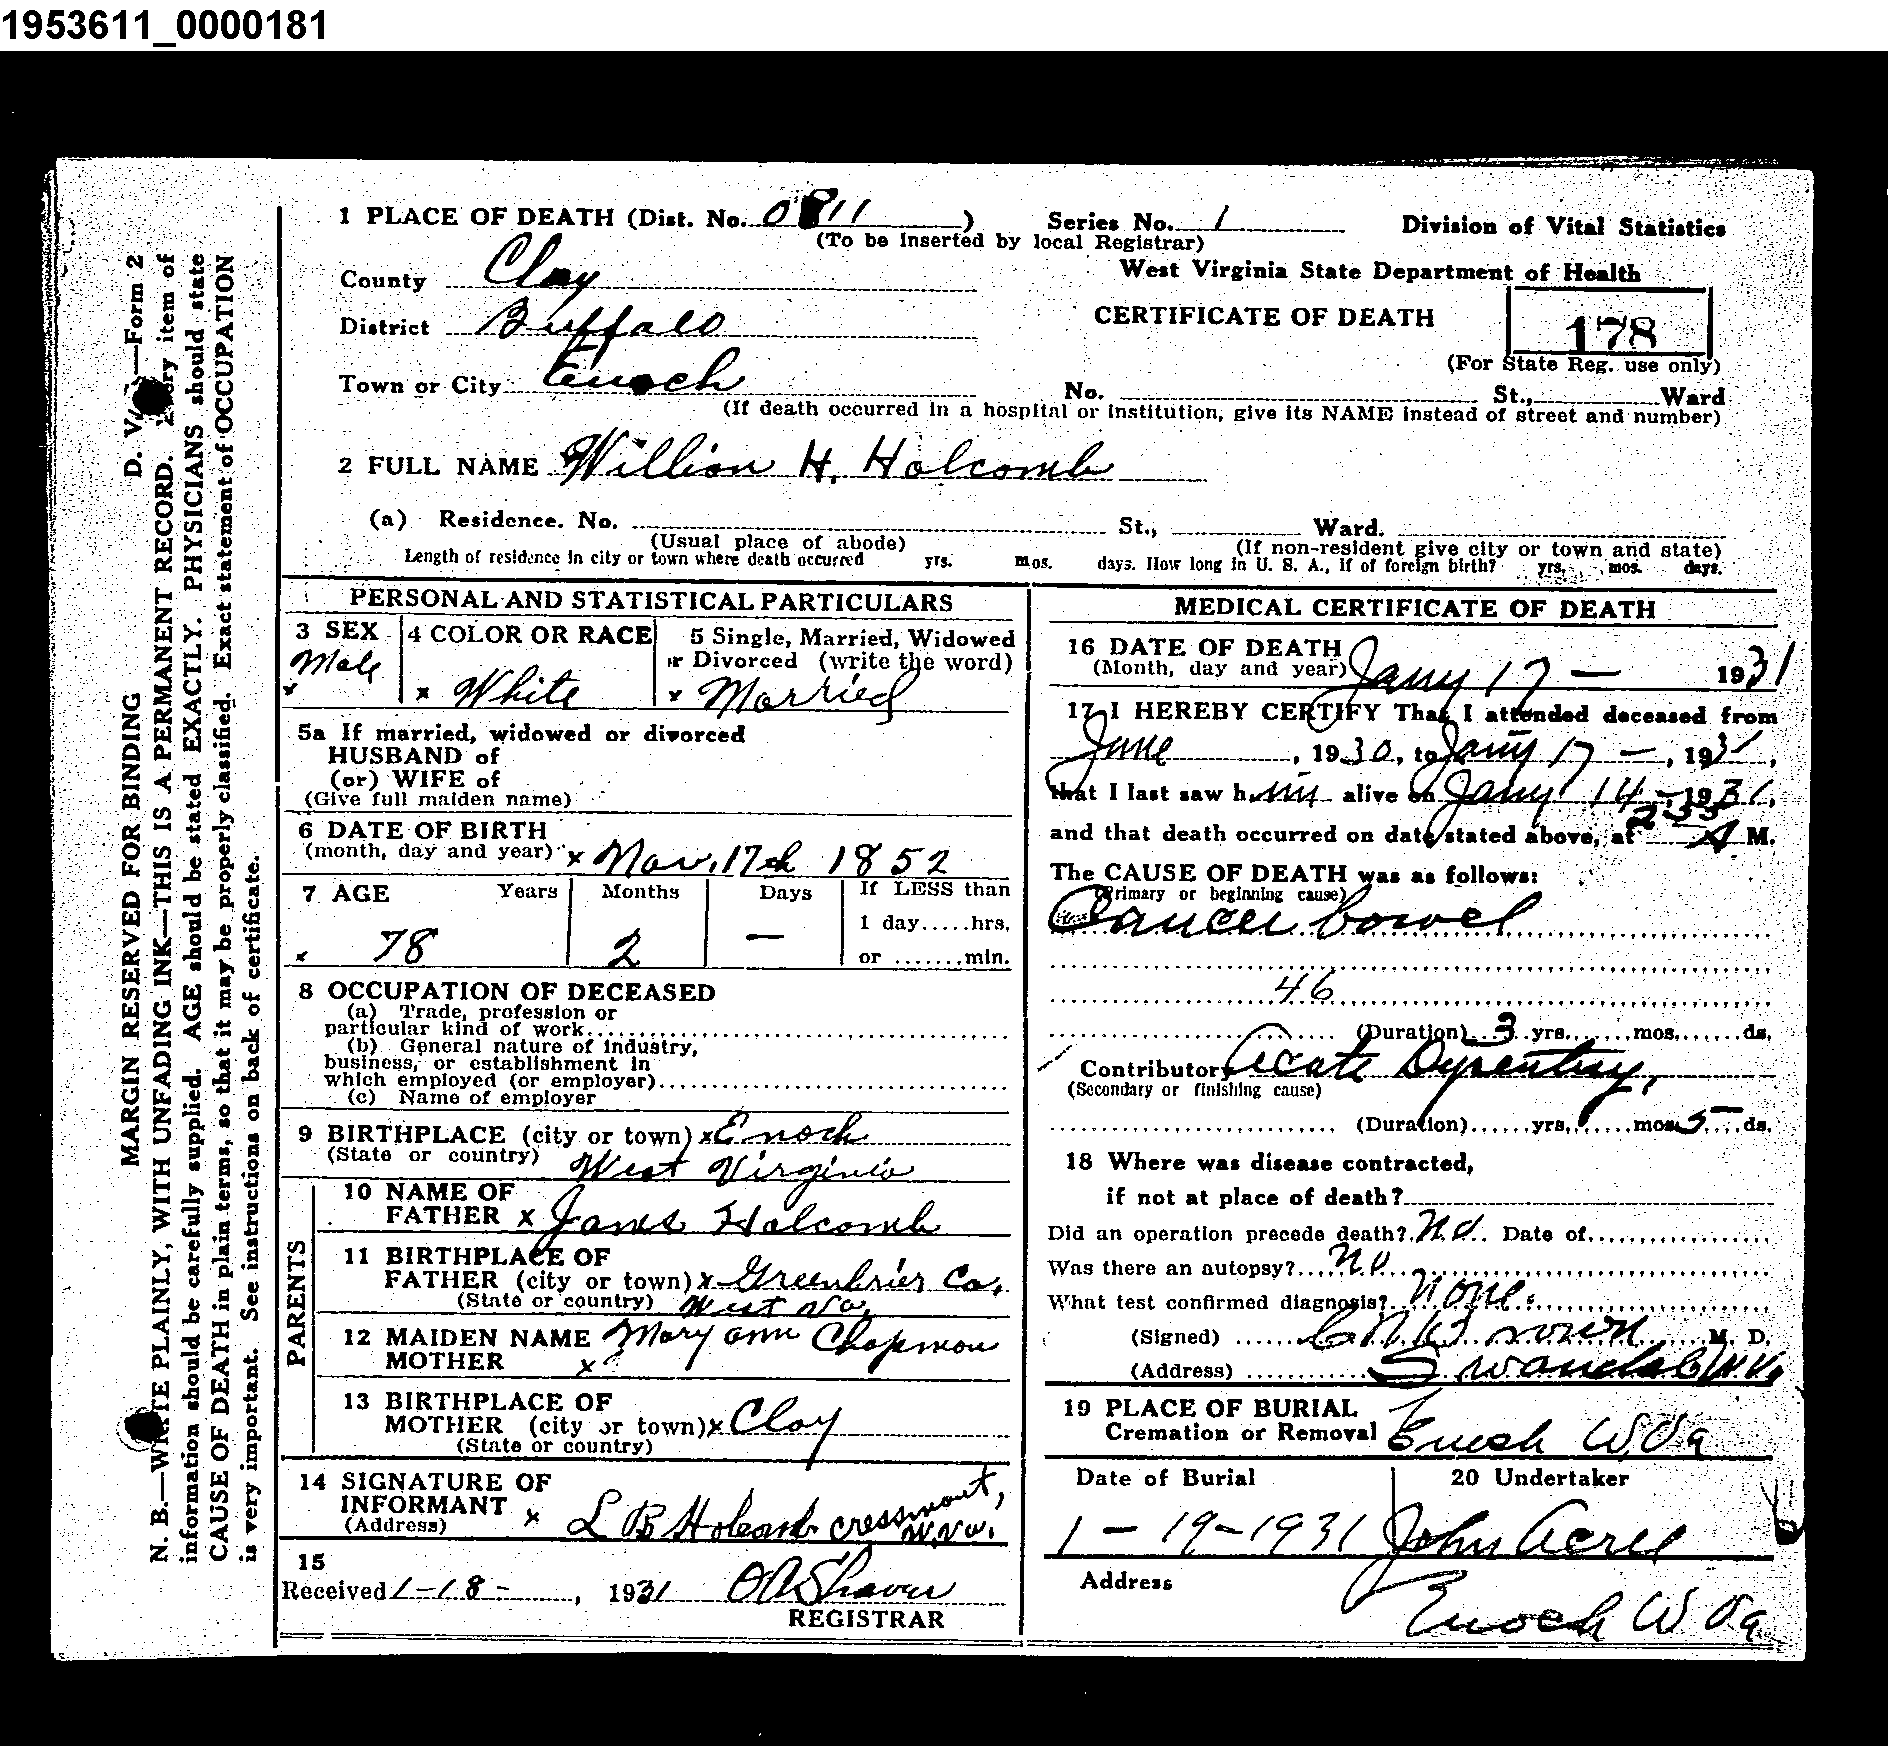 1953611_0000181
1 PLACE OF DEATH (Dist. No. 0811 ) Series No. 1 Division of Vital Statistics
(To be inserted by local Registrar)
County Clay West Virginia State Department of Health
District Buffalo CERTIFICATE OF DEATH 178
(For State Reg. use only)
Town or City Enoch No. St., Ward
(If death occurred in a hospital or institution, give its NAME instead of street and number)
2 FULL NAME William H. Holcomb
(a) Residence. No. St., Ward.
(Usual place of abode) (If non-resident give city or town and state)
Length of residence in city or town where death occurred yrs. mos. days. How long in U. S. A., if of foreign birth? yrs. mos. days.
PERSONAL AND STATISTICAL PARTICULARS
3 SEX 4 COLOR OR RACE 5 Single, Married, Widowed
or Divorced (write the word)
Male x White x Married
x
5a If married, widowed or divorced
HUSBAND of
(or) WIFE of
(Give full maiden name)
6 DATE OF BIRTH
(month, day and year) x Nov. 17th 1852
7 AGE Years Months Days If LESS than
1 day.....hrs.
x 78 2 — or .......min.
8 OCCUPATION OF DECEASED
(a) Trade, profession or
particular kind of work
(b) General nature of industry,
business, or establishment in
which employed (or employer)
(c) Name of employer
9 BIRTHPLACE (city or town) x Enoch
(State or country) West Virginia
PARENTS
10 NAME OF
FATHER x James Holcomb
11 BIRTHPLACE OF
FATHER (city or town) x Greenbrier Co.
(State or country) West Va.
12 MAIDEN NAME Mary ann Chapman
MOTHER x
13 BIRTHPLACE OF
MOTHER (city or town) x Clay
(State or country)
14 SIGNATURE OF
INFORMANT x L B Holcomb cressmont,
(Address) W.Va.
15
Received 1-18-, 1931 O A Shaver
REGISTRAR
MEDICAL CERTIFICATE OF DEATH
16 DATE OF DEATH
(Month, day and year) Jany 17 — 1931
17 I HEREBY CERTIFY That I attended deceased from
June, 1930, to Jany 17 —, 1931,
that I last saw him alive on Jany 14 - 1931,
and that death occurred on date stated above, at 235 A M.
The CAUSE OF DEATH was as follows:
(Primary or beginning cause)
Cancer bowel
46
(Duration) 3 yrs. mos. ds.
Contributory Acute Dysentery,
(Secondary or finishing cause)
(Duration) yrs. mos 5 ds.
18 Where was disease contracted,
if not at place of death?
Did an operation precede death? No. Date of
Was there an autopsy? No
What test confirmed diagnosis? None.
(Signed) Brown M. D.
(Address) Swandale W.Va
19 PLACE OF BURIAL
Cremation or Removal Enoch W.Va
Date of Burial 20 Undertaker
1-19-1931 John Acree
Address
Enoch W Va
MARGIN RESERVED FOR BINDING D. V. S.—Form 2
N. B.—WRITE PLAINLY, WITH UNFADING INK—THIS IS A PERMANENT RECORD. Every item of
information should be carefully supplied. AGE should be stated EXACTLY. PHYSICIANS should state
CAUSE OF DEATH in plain terms, so that it may be properly classified. Exact statement of OCCUPATION
is very important. See instructions on back of certificate.